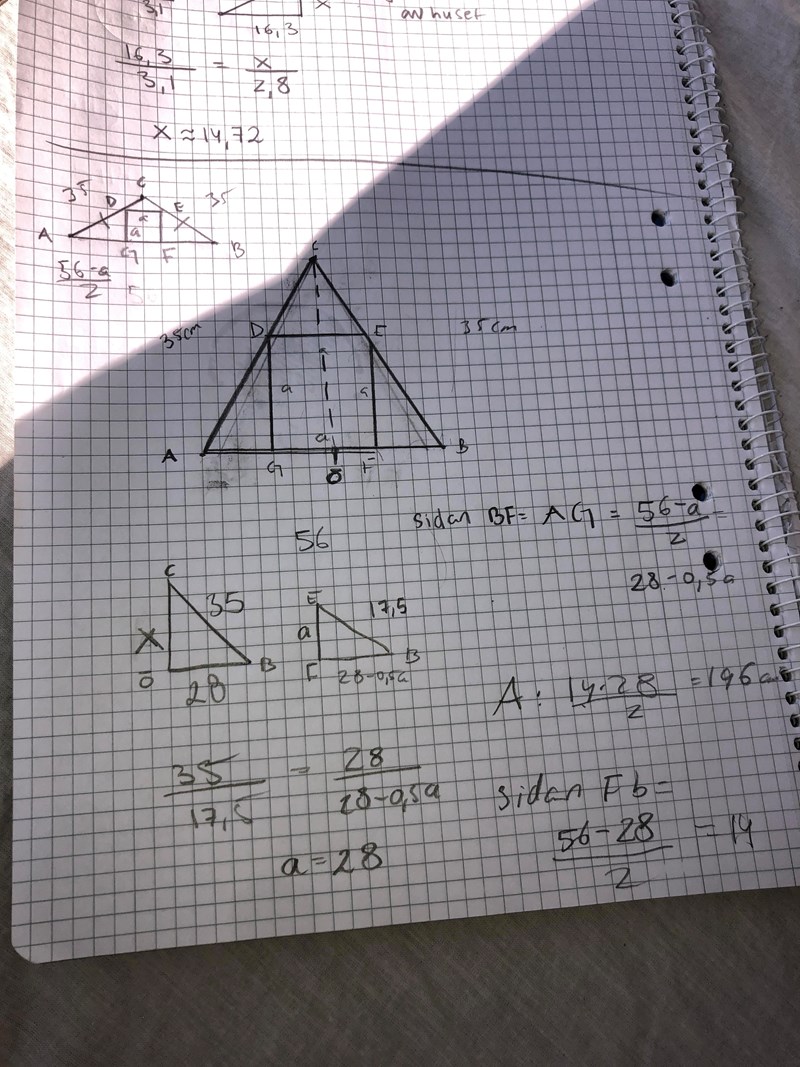 3,1
16,3
x
av huset
16,3 / 3,1 = x / 2,8
x ≈ 14,72
35 C 35
D E
A a a B
G F
56-a / 2
C
35cm D E 35cm
a a
a
A G O F B
56
sidan BF = AG = 56-a / 2 =
28-0,5a
C 35 X O 28 B
E 17,5 a F 28-0,5a B
A: 14·28 / 2 = 196
35 / 17,5 = 28 / 28-0,5a
a=28
sidan Fb =
56-28 / 2 = 14